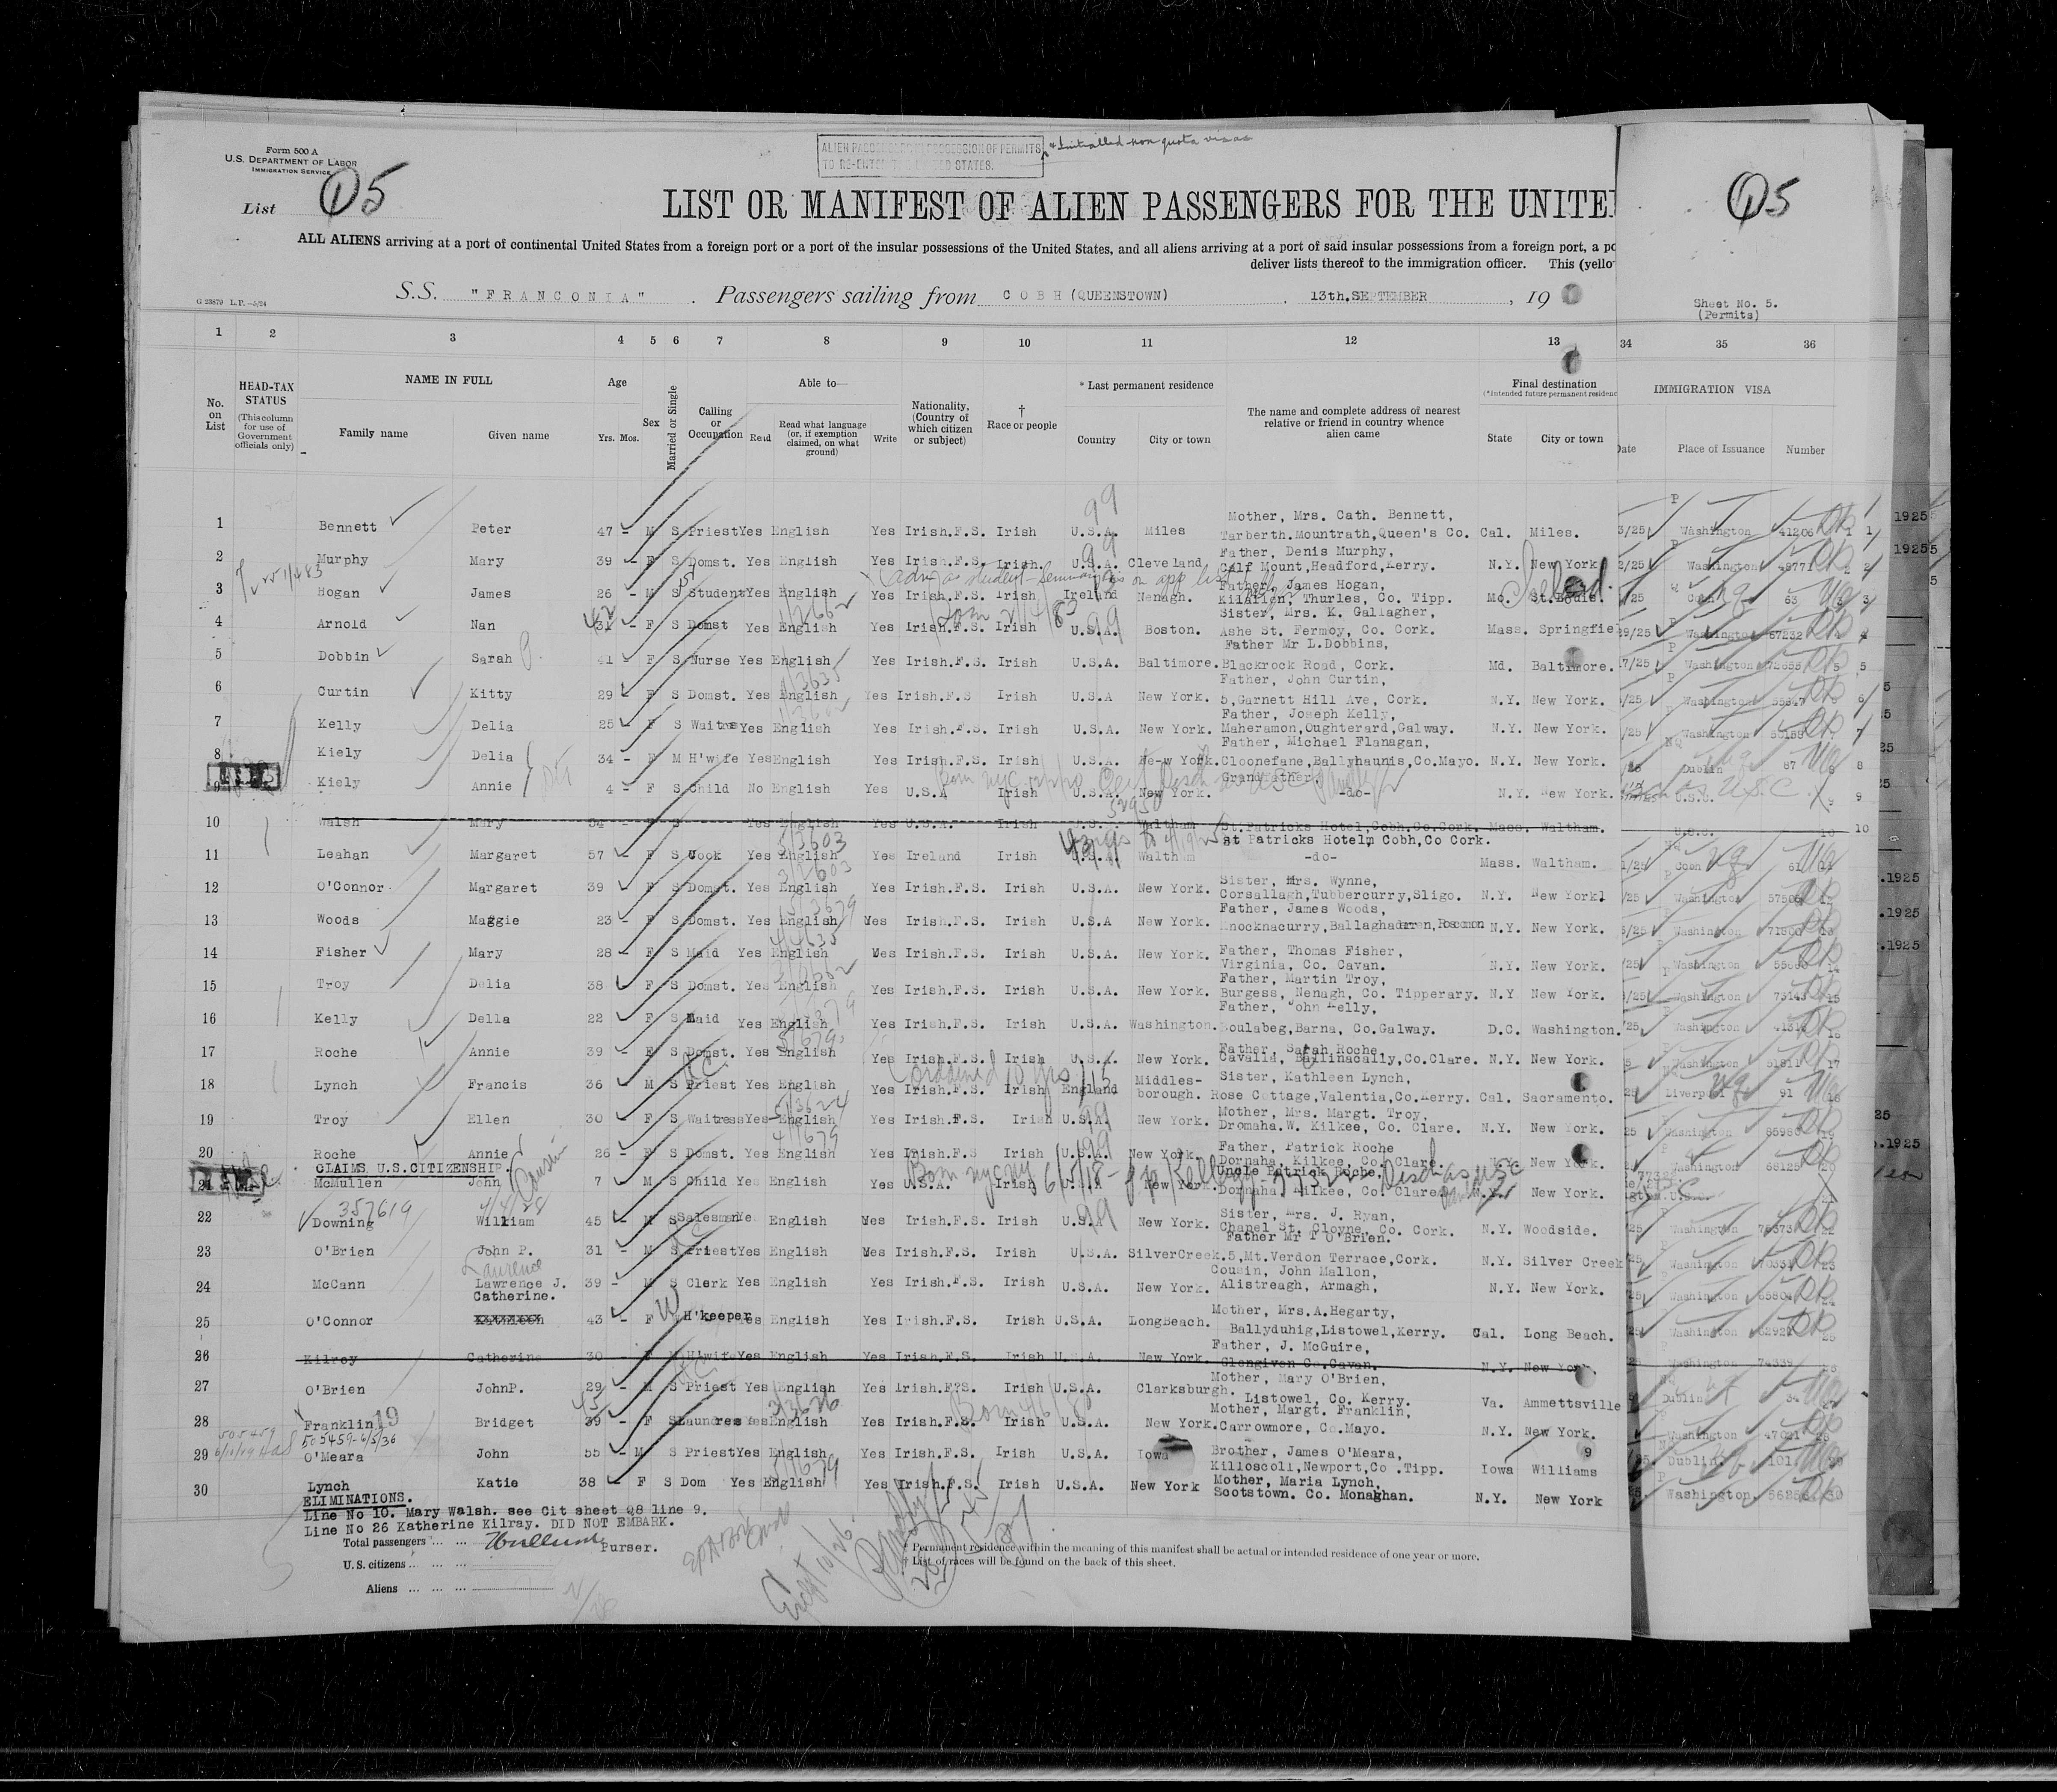 Form 500 A
U.S. DEPARTMENT OF LABOR
IMMIGRATION SERVICE
ALIEN PASSENGERS IN POSSESSION OF PERMITS
TO RE-ENTER THE UNITED STATES.
& Initialled non quota visas
List 5
5
LIST OR MANIFEST OF ALIEN PASSENGERS FOR THE UNITE
ALL ALIENS arriving at a port of continental United States from a foreign port or a port of the insular possessions of the United States, and all aliens arriving at a port of said insular possessions from a foreign port, a po
deliver lists thereof to the immigration officer. This (yello
G 23879 L.P.-5/24
S.S. "FRANCONIA". Passengers sailing from COBH (QUEENSTOWN), 13th.SEPTEMBER, 19
Sheet No. 5.
(Permits)
1 2 3 4 5 6 7 8 9 10 11 12 13 34 35 36
No. on List
HEAD-TAX STATUS (This column for use of Government officials only)
NAME IN FULL Family name Given name
Age Yrs. Mos.
Sex
Married or Single
Calling or Occupation
Able to— Read Read what language (or, if exemption claimed, on what ground) Write
Nationality, (Country of which citizen or subject)
† Race or people
* Last permanent residence Country City or town
The name and complete address of nearest relative or friend in country whence alien came
Final destination (*Intended future permanent residenc State City or town
IMMIGRATION VISA
Date Place of Issuance Number
Mother, Mrs. Cath. Bennett,
1 Bennett Peter 47 - M S Priest Yes English Yes Irish.F.S. Irish U.S.A. Miles Tarberth.Mountrath,Queen's Co. Cal. Miles. 3/25 Washington 41206 1 1925
Father, Denis Murphy,
2 Murphy Mary 39 - F S Domst. Yes English Yes Irish.F.S. Irish. U.S.A. Cleveland Calf Mount,Headford,Kerry. N.Y. New York. 2/25 Washington 48771 2 1925
Father, James Hogan,
3 Hogan James 26 - M S Student Yes English Yes Irish.F.S. Irish Ireland Nenagh. Kilarion, Thurles, Co. Tipp. Mo. St.Louis. /25 63 3
Sister, Mrs. K. Gallagher,
4 Arnold Nan 31 - F S Domst Yes English Yes Irish.F.S. Irish U.S.A. Boston. Ashe St. Fermoy, Co. Cork. Mass. Springfie 19/25 Washington 67232 4
Father Mr L.Dobbins,
5 Dobbin Sarah 41 - F S Nurse Yes English Yes Irish.F.S. Irish U.S.A. Baltimore. Blackrock Road, Cork. Md. Baltimore. 7/25 Washington 72655 5
Father, John Curtin,
6 Curtin Kitty 29 - F S Domst. Yes English Yes Irish.F.S Irish U.S.A New York. 5,Garnett Hill Ave, Cork. N.Y. New York. /25 Washington 55647 6
Father, Joseph Kelly,
7 Kelly Delia 25 - F S Waitress Yes English Yes Irish.F.S. Irish U.S.A. New York. Maheramon,Oughterard,Galway. N.Y. New York. /25 Washington 56159 7
Father, Michael Flanagan,
8 Kiely Delia 34 - F M H'wife Yes English Yes Irish.F.S. Irish U.S.A. New York. Cloonefane,Ballyhaunis,Co.Mayo. N.Y. New York. /25 Dublin 67 8
Grandfather,
9 Kiely Annie 4 - F S Child No English Yes U.S.A Irish U.S.A. New York. -do- N.Y. New York. U.S.C. 9
10 Walsh Mary 34 - Yes English Yes U.S.A. Irish U.S. Waltham St.Patricks Hotel,Cobh.Co.Cork. Mass. Waltham. U.S.C. 10
St Patricks Hotel, Cobh,Co Cork.
11 Leahan Margaret 57 - F S Cook Yes English Yes Ireland Irish U.S.A. Waltham -do- Mass. Waltham. 1/25 61
Sister, Mrs. Wynne,
12 O'Connor Margaret 39 F S Domst. Yes English Yes Irish.F.S. Irish U.S.A. New York. Corsallagh,Tubbercurry,Sligo. N.Y. New York /25 Washington 1925
Father, James Woods,
13 Woods Maggie 23 - F S Domst. Yes English Yes Irish.F.S. Irish U.S.A New York. Knocknacurry,Ballaghaderren,Roscommon N.Y. New York. 5/25 Washington 13 1925
14 Fisher Mary 28 - F S Maid Yes English Yes Irish.F.S. Irish U.S.A. New York. Father, Thomas Fisher,
Virginia, Co. Cavan. N.Y. New York. /25 Washington 14 1925
Father, Martin Troy,
15 Troy Delia 38 F S Domst. Yes English Yes Irish.F.S. Irish U.S.A. New York. Burgess, Nenagh, Co. Tipperary. N.Y New York. /25 Washington 73143 15
Father, John Kelly,
16 Kelly Della 22 F S Maid Yes English Yes Irish.F.S. Irish U.S.A. Washington. Boulabeg,Barna, Co,Galway. D.C. Washington. /25 Washington 16
Father, Sarah Roche
17 Roche Annie 39 - F S Domst. Yes English Yes Irish.F.S. Irish U.S.A. New York. Cavalla, Ballinacally,Co.Clare. N.Y. New York. Washington 51811 17
18 Lynch Francis 36 M S Priest Yes English Yes Irish.F.S. Irish England Middles-
borough. Sister, Kathleen Lynch,
Rose Cottage,Valentia,Co.Kerry. Cal. Sacramento. 25 Liverpool 91 18
Mother, Mrs. Margt. Troy,
19 Troy Ellen 30 - F S Waitress Yes English Yes Irish.F.S. Irish U.S.A. New York. Dromaha.W. Kilkee, Co. Clare. N.Y. New York. 25 Washington 85983 19
Father, Patrick Roche
20 Roche Annie 26 - F S Domst. Yes English Yes Irish.F.S. Irish U.S.A. New York. Dornaha, Kilkee, Co. Clare. N.Y. New York. Washington 68125 20 1925
CLAIMS U.S.CITIZENSHIP.
Uncle Patrick Roche,
21 McMullen John 7 M S Child Yes English Yes U.S.A. Irish U.S.A New York. Dornaha, Kilkee, Co. Clare. N.Y. New York.
357619
Sister, Mrs. J. Ryan,
22 Downing William 45 - M S Salesman Yes English Yes Irish.F.S. Irish U.S.A New York. Chapel St. Cloyne, Co. Cork. N.Y. Woodside. /25 Washington 22
Father Mr T O'Brien.
23 O'Brien John P. 31 - M S Priest Yes English Yes Irish.F.S. Irish U.S.A. SilverCreek. 5,Mt.Verdon Terrace,Cork. N.Y. Silver Creek 25 Washington 23
Laurence
Cousin, John Mallon,
24 McCann Lawrence J. 39 - M S Clerk Yes English Yes Irish.F.S. Irish U.S.A. New York. Alistreagh, Armagh, N.Y. New York. 25 Washington 65804 24
Catherine.
Mother, Mrs.A.Hegarty,
25 O'Connor 43 - F W H'keeper Yes English Yes Irish.F.S. Irish U.S.A. LongBeach. Ballyduhig,Listowel,Kerry. Cal. Long Beach. 25 Washington 25
Father, J. McGuire,
26 Kilroy Catherine 30 - F M H'wife Yes English Yes Irish.F.S. Irish U.S.A New York. Glengiven Co.Cavan. N.Y. New York. Washington 26
Mother, Mary O'Brien,
27 O'Brien JohnP. 29 - M S Priest Yes English Yes Irish.F?S. Irish U.S.A. Clarksburgh. Listowel, Co. Kerry. Va. Ammettsville Dublin 34 27
Mother, Margt. Franklin,
28 Franklin Bridget 39 - F S Laundress Yes English Yes Irish.F.S. Irish U.S.A. New York. Carrowmore, Co.Mayo. N.Y. New York. Washington 47021 28
505459-6/5/36
Brother, James O'Meara,
29 O'Meara John 55 - M S Priest Yes English Yes Irish.F.S. Irish U.S.A. Iowa Killoscoll,Newport,Co.Tipp. Iowa Williams Dublin 101 29
Mother, Maria Lynch,
30 Lynch Katie 38 - F S Dom Yes English Yes Irish.F.S. Irish U.S.A. New York Scotstown. Co. Monaghan. N.Y. New York Washington 30
ELIMINATIONS.
Line No 10. Mary Walsh. see Cit sheet Q8 line 9.
Line No 26 Katherine Kilray. DID NOT EMBARK.
Total passengers ... ... Purser.
U.S. citizens ... ... ...
Aliens ... ... ...
* Permanent residence within the meaning of this manifest shall be actual or intended residence of one year or more.
† List of races will be found on the back of this sheet.